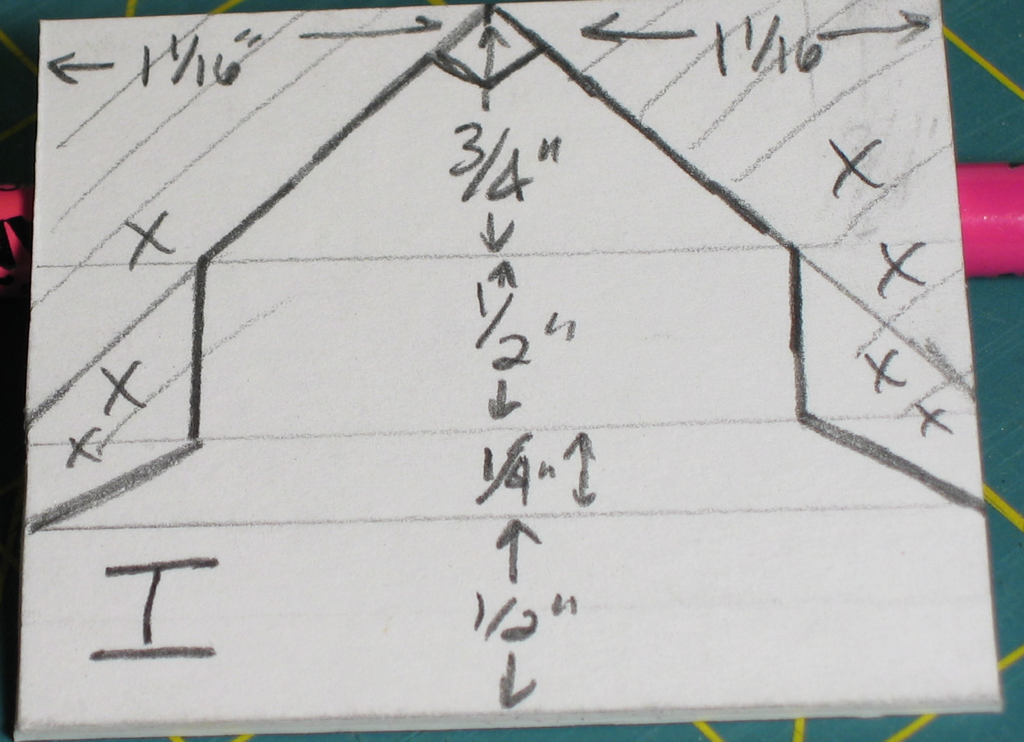 1 1/16" 1 1/16
3/4"
X
X
X
1/2"
X
X
X
X
1/4"
I
1/2"